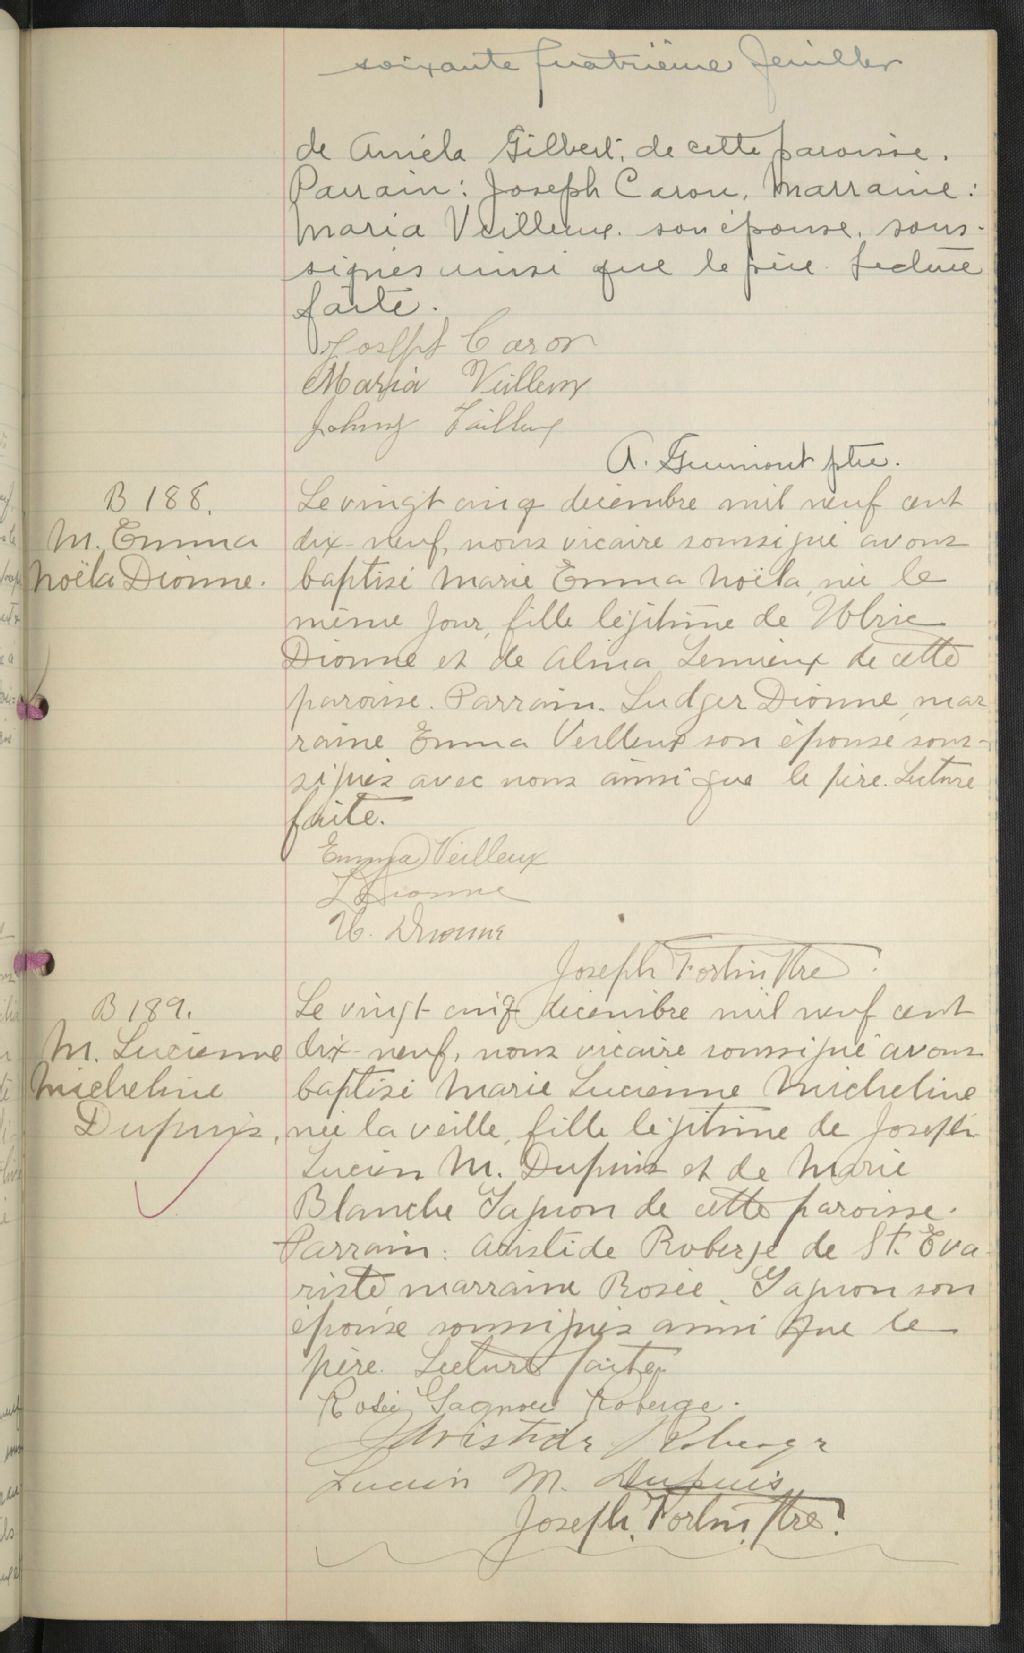 soixante quatrième feuillet
de Améla Gilbert, de cette paroisse.
Parrain: Joseph Caron, Marraine:
Maria Veilleux son épouse, sous-
signés ainsi que le père lecture
faite.
Joseph Caron
Maria Veilleux
Johnny Vailleux
A. Guimont ptre.
B 188.
M. Emma
Noëla Dionne.
Le vingt cinq décembre mil neuf cent
dix-neuf, nous vicaire soussigné avons
baptisé Marie Emma Noëla, née le
même jour, fille légitime de Ulric
Dionne et de Alma Lemieux de cette
paroisse. Parrain. Ludger Dionne, mar
raine Emma Veilleux son épouse sous-
signés avec nous ainsi que le père. Lecture
faite.
Emma Veilleux
L Dionne
U. Dionne
Joseph Fortin Ptre.
B 189.
M. Lucienne
Micheline
Dupuis,
Le vingt cinq décembre mil neuf cent
dix-neuf, nous vicaire soussigné avons
baptisé Marie Lucienne Micheline
née la veille, fille légitime de Joseph
Lucien M. Dupuis et de Marie
Blanche Gagnon de cette paroisse.
Parrain: Aristide Roberge de St. Eva
riste marraine Rosée Gagnon son
épouse soussignés ainsi que le
père. Lecture faite.
Rosée Gagnon Roberge.
Aristide Roberge
Lucien M. Dupuis
Joseph Fortin, Ptre.